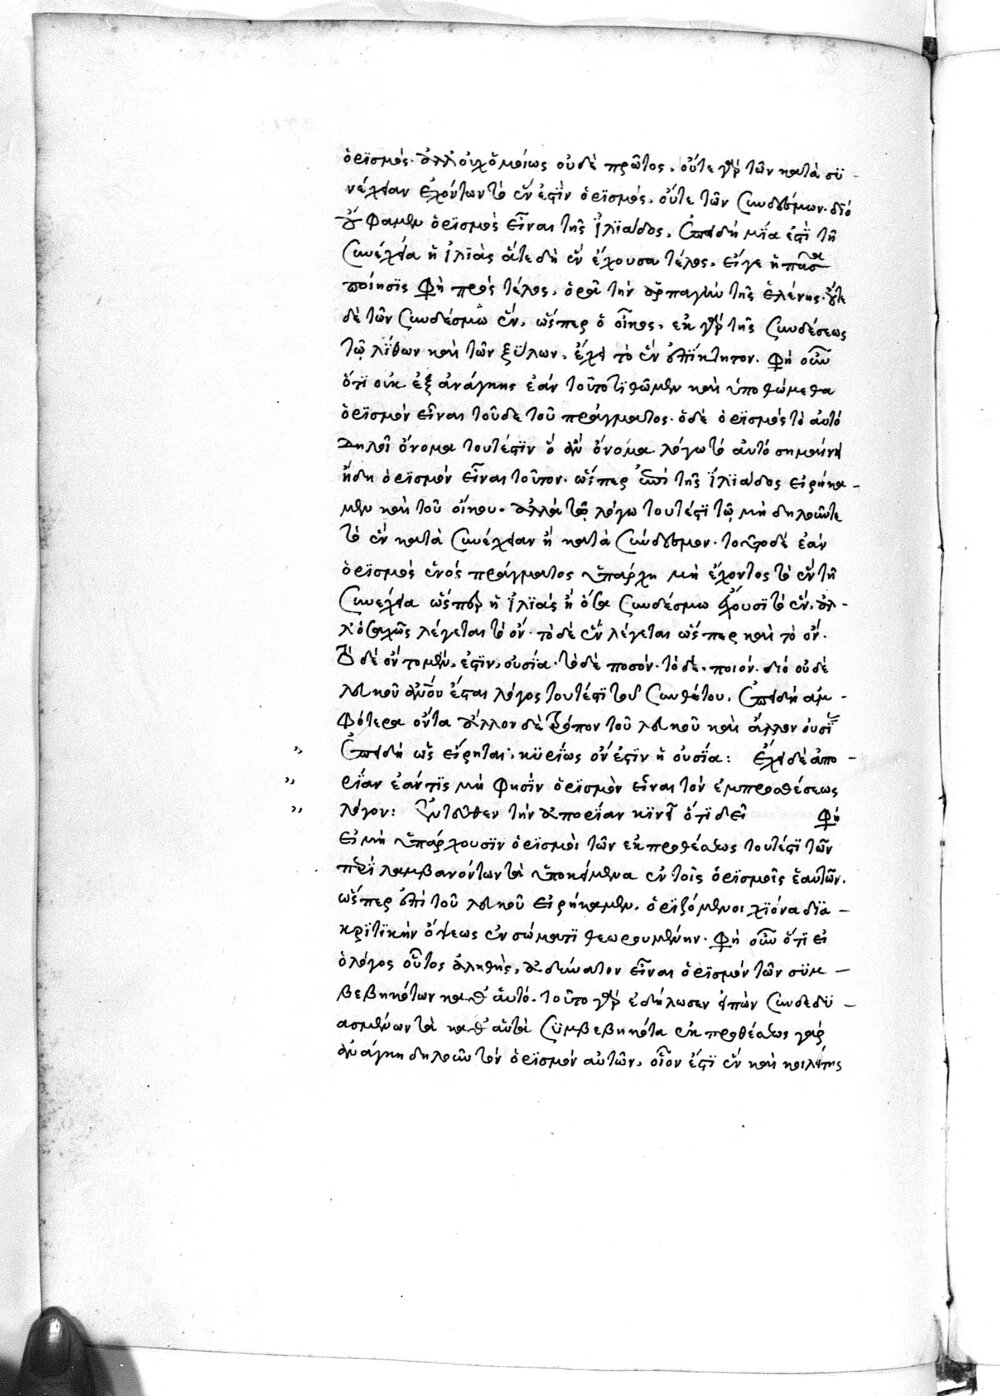 ὁρϊσμός. ἀλλ' οὐχ ὁμοίως οὐδὲ πρῶτος. οὔτε γὰρ τῶν κατὰ συ-
νέχειαν ἐχόντων τὸ ἕν ἐστὶν ὁρϊσμός, οὔτε τῶν συνδέσμων. διὸ
οὔ φαμεν ὁρϊσμὸς εἶναι τῆς ἰλϊάδος, ἐπειδὴ μΐα ἐστὶ τῆ
συνεχεία ἡ ἰλϊὰς ἅτε δὴ ἓν ἔχουσα τέλος. εἴγε ἡ πᾶσα
ποίησϊς φη πρὸς τέλος, ὁρᾶ τὴν ἁρπαγὴν τῆς ἑλένης. οὔτε
δὲ τῶν συνδέσμω ἕν, ὥσπερ ὁ οἶκος, ἐκ γὰρ τῆς συνδέσεως
τῶ λίθων καὶ τῶν ξύλων, ἔχει τὸ ἓν ἐπίκτητον. φη οὖν
ὅτι οὐκ ἐξ ἀνάγκης ἐὰν τοῦτο τϊθῶμεν καὶ ὑποθώμεθα
ὁρϊσμὸν εἶναι τοῦδε τοῦ πράγματος. ὁδὲ ὁρϊσμὸς τὸ αὐτὸ
δηλοῖ ὄνομα τουτέστϊν ὃ ἂν ὄνομα λόγω τὸ αὐτὸ σημαίνη
ἤδη ὁρϊσμὸν εἶναι τοῦτον. ὥσπερ ἐπὶ τῆς ἰλϊάδος εἰρήκα-
μεν καὶ τοῦ οἴκου. ἀλλὰ τῶ λόγω τουτέστι τῶ μὴ δηλοῦντι
τὸ ἓν κατὰ συνέχειαν ἢ κατὰ σύνδεσμον. τοῦτο δὲ ἐὰν
ὁρϊσμὸς ἑνὸς πράγματος ὑπάρχη μὴ ἔχοντος τὸ ἓν τῆ
συνεχεία ὥσπερ ἡ ἰλϊὰς ἢ ὅσα συνδέσμω ἔχουσϊ τὸ ἕν. ἀλ-
λ' ὁσαχῶς λέγεται τὸ ὄν. τὸ δὲ ἓν λέγεται ὥσπερ καὶ τὸ ὄν.
τὸ δὲ ὂν τὸ μέν, ἐστϊν, οὐσία. τὸ δὲ ποσόν. τὸ δὲ, ποιόν. διὸ οὐδὲ
λευκοῦ ἀνου ἔσται λόγος τουτέστι τοῦ συνθέτου, ἐπειδὴ ἀμ-
φότερα ὄντα ἄλλον δὲ τρόπον τοῦ λευκοῦ καὶ ἄλλον οὐσία
ἐπειδὴ ὡς εἴρηται, κϋρίως ὄν ἐστϊν ἡ οὐσΐα: ἔχει δὲ ἀπο-
ρΐαν ἐάν τϊς μὴ φησὶν ὁρϊσμὸν εἶναι τὸν ἐκ προσθέσεως
λόγον: ἐντεῦθεν τὴν ἀπορΐαν κϊνεῖ ὅτϊ δεῖ φη
εἰ μὴ ὑπάρχουσϊν ὁρϊσμοὶ τῶν ἐκ προσθέσεως τουτέστι τῶν
περὶ λαμβανόντων τὰ ὑποκείμενα ἐν τοῖς ὁρϊσμοῖς ἑαυτῶν.
ὥσπερ ἐπὶ τοῦ λευκοῦ εἰρήκαμεν, ὁρϊζόμενοι χϊόνα δϊα-
κρϊτϊκὴν ὄψεως ἐν σώματι θεωρουμένην. φη οὖν ὅτι εἰ
ὁ λόγος οὗτος ἀληθής, ἀδύνατον εἶναι ὁρϊσμὸν τῶν συμ-
βεβηκότων καθ' αὑτό. τοῦτο γὰρ ἐδήλωσεν εἰπὼν συνδεδυ-
ασμένων τὰ καθ' αὑτὰ συμβεβηκότα ἐκ προσθέσεως γὰρ
ἀνάγκη δηλοῦν τὸν ὁρϊσμὸν αὐτῶν, οἷον ἐστϊ ἓν καὶ κοιλότης